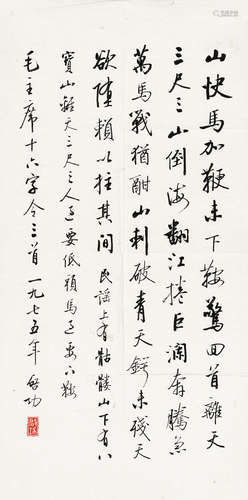 山快馬加鞭未下鞍驚回首離天
三尺三山倒海翻江捲巨瀾奔騰急
萬馬戰猶酣山刺破青天鍔未殘天
欲墮賴以拄其間 民謠上有骷髏山下有八
寶山離天三尺三人過要低頭馬過要下鞍
毛主席十六字令三首 一九七五年 啟功